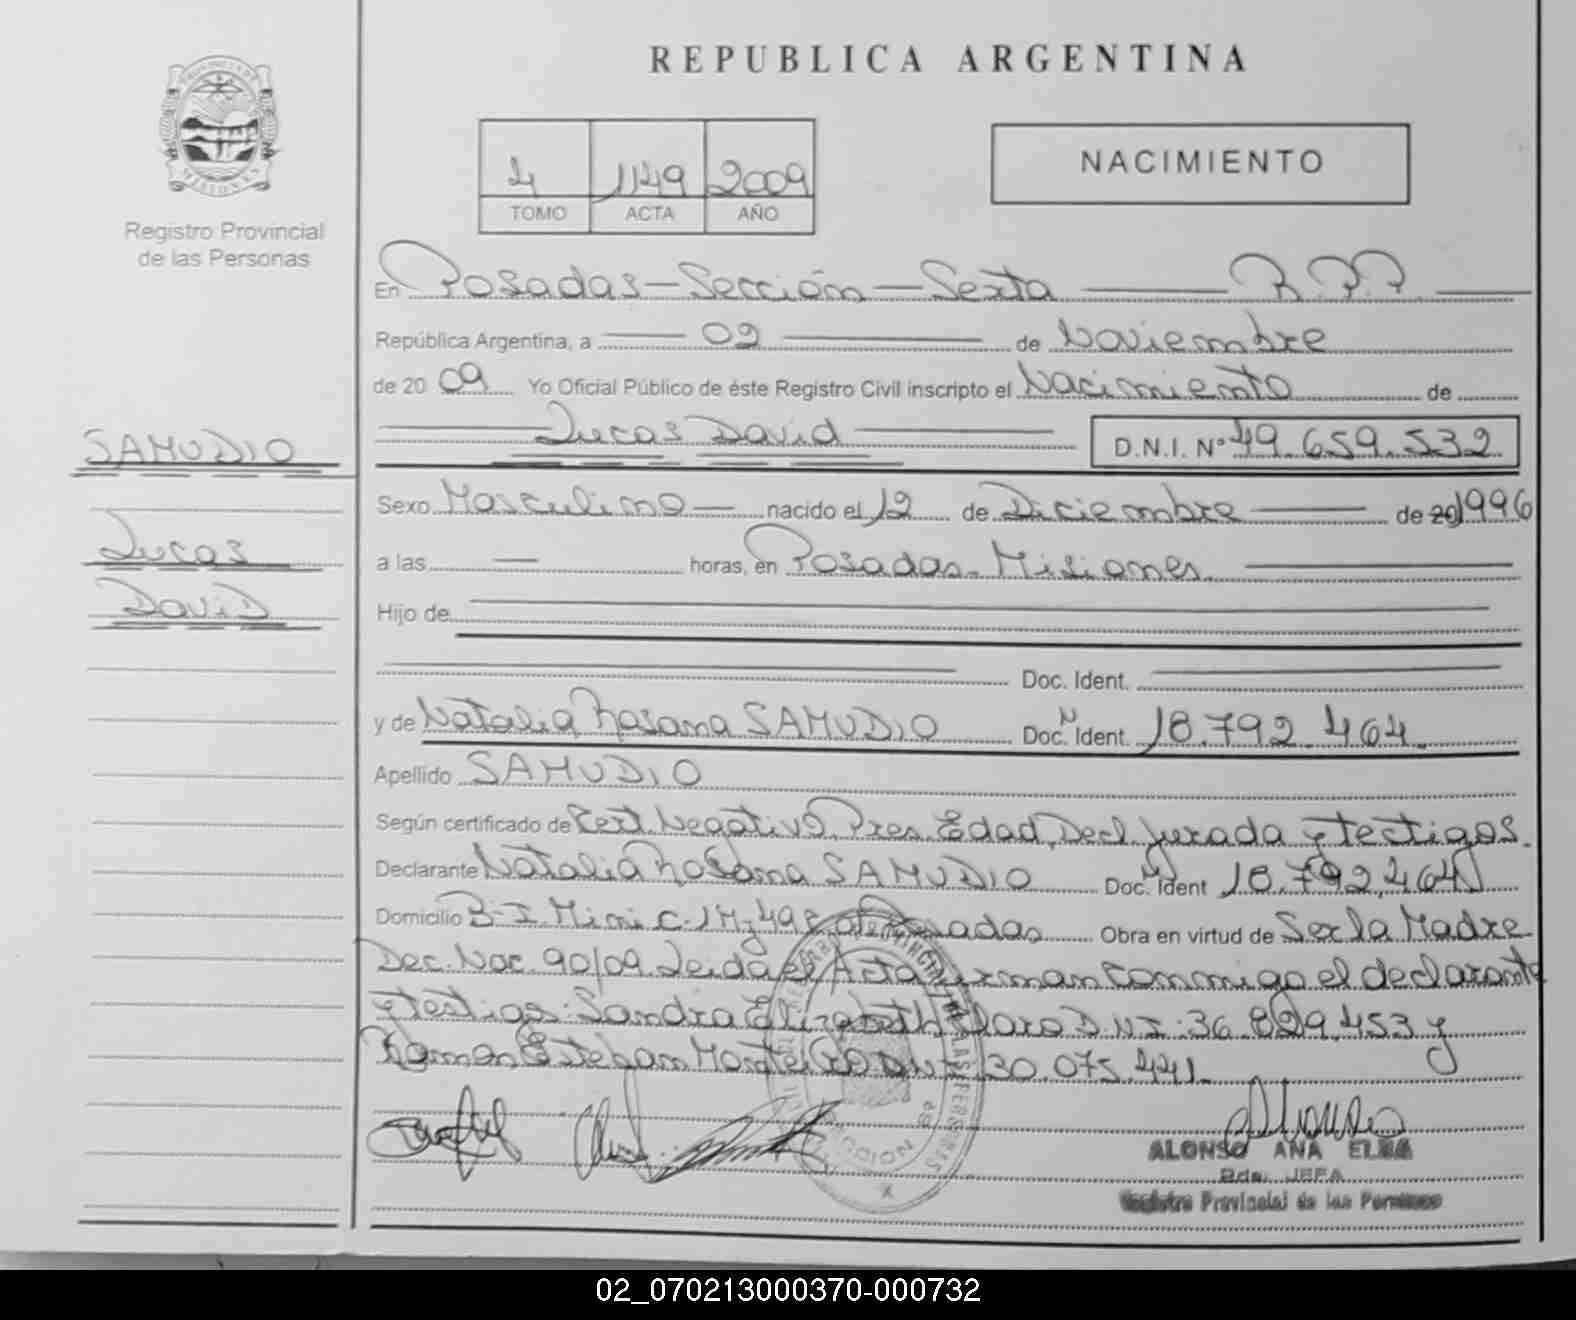 REPUBLICA ARGENTINA
PROVINCIA DE
MISIONES
Registro Provincial
de las Personas
4 1149 2009
TOMO ACTA AÑO
NACIMIENTO
En Posadas - Sección - Sexta R.P.P.
República Argentina, a 02 de Noviembre
de 20 09 Yo Oficial Público de éste Registro Civil inscripto el Nacimiento de
Lucas David D.N.I. Nº 49.659.532
SAMUDIO
Lucas
David
Sexo Masculino nacido el 12 de Diciembre de 20 1996
a las — horas, en Posadas - Misiones
Hijo de
Doc. Ident.
y de Natalia Rosana SAMUDIO Doc. N Ident. 18.792.464
Apellido SAMUDIO
Según certificado de Cert. Negativo, Pres. Edad, Decl. Jurada y testigos.
Declarante Natalia Rosana SAMUDIO Doc. Ident 18.792.464
Domicilio Posadas Obra en virtud de Ser la Madre
Dec. Nac. 90/09. Leida el Acta firman conmigo el declarante
y testigos: Sandra Elizabeth D.N.I: 36.829.453 y
Ramon Esteban DNI 30.075.441.
ALONSO ANA ELBA
JEFA
Registro Provincial de las Personas
02_070213000370-000732